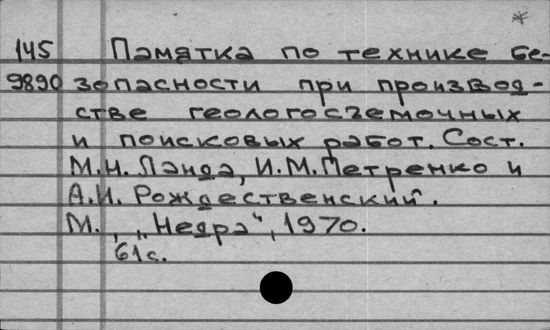 *
145 Памятка по технике бе-
9890 зопасности при производ-
стве геологосъемочных
и поисковых работ. Сост.
М.Н. Ланда, И.М. Петренко и
А.И. Рождественский.
М., „Недра", 1970.
61с.